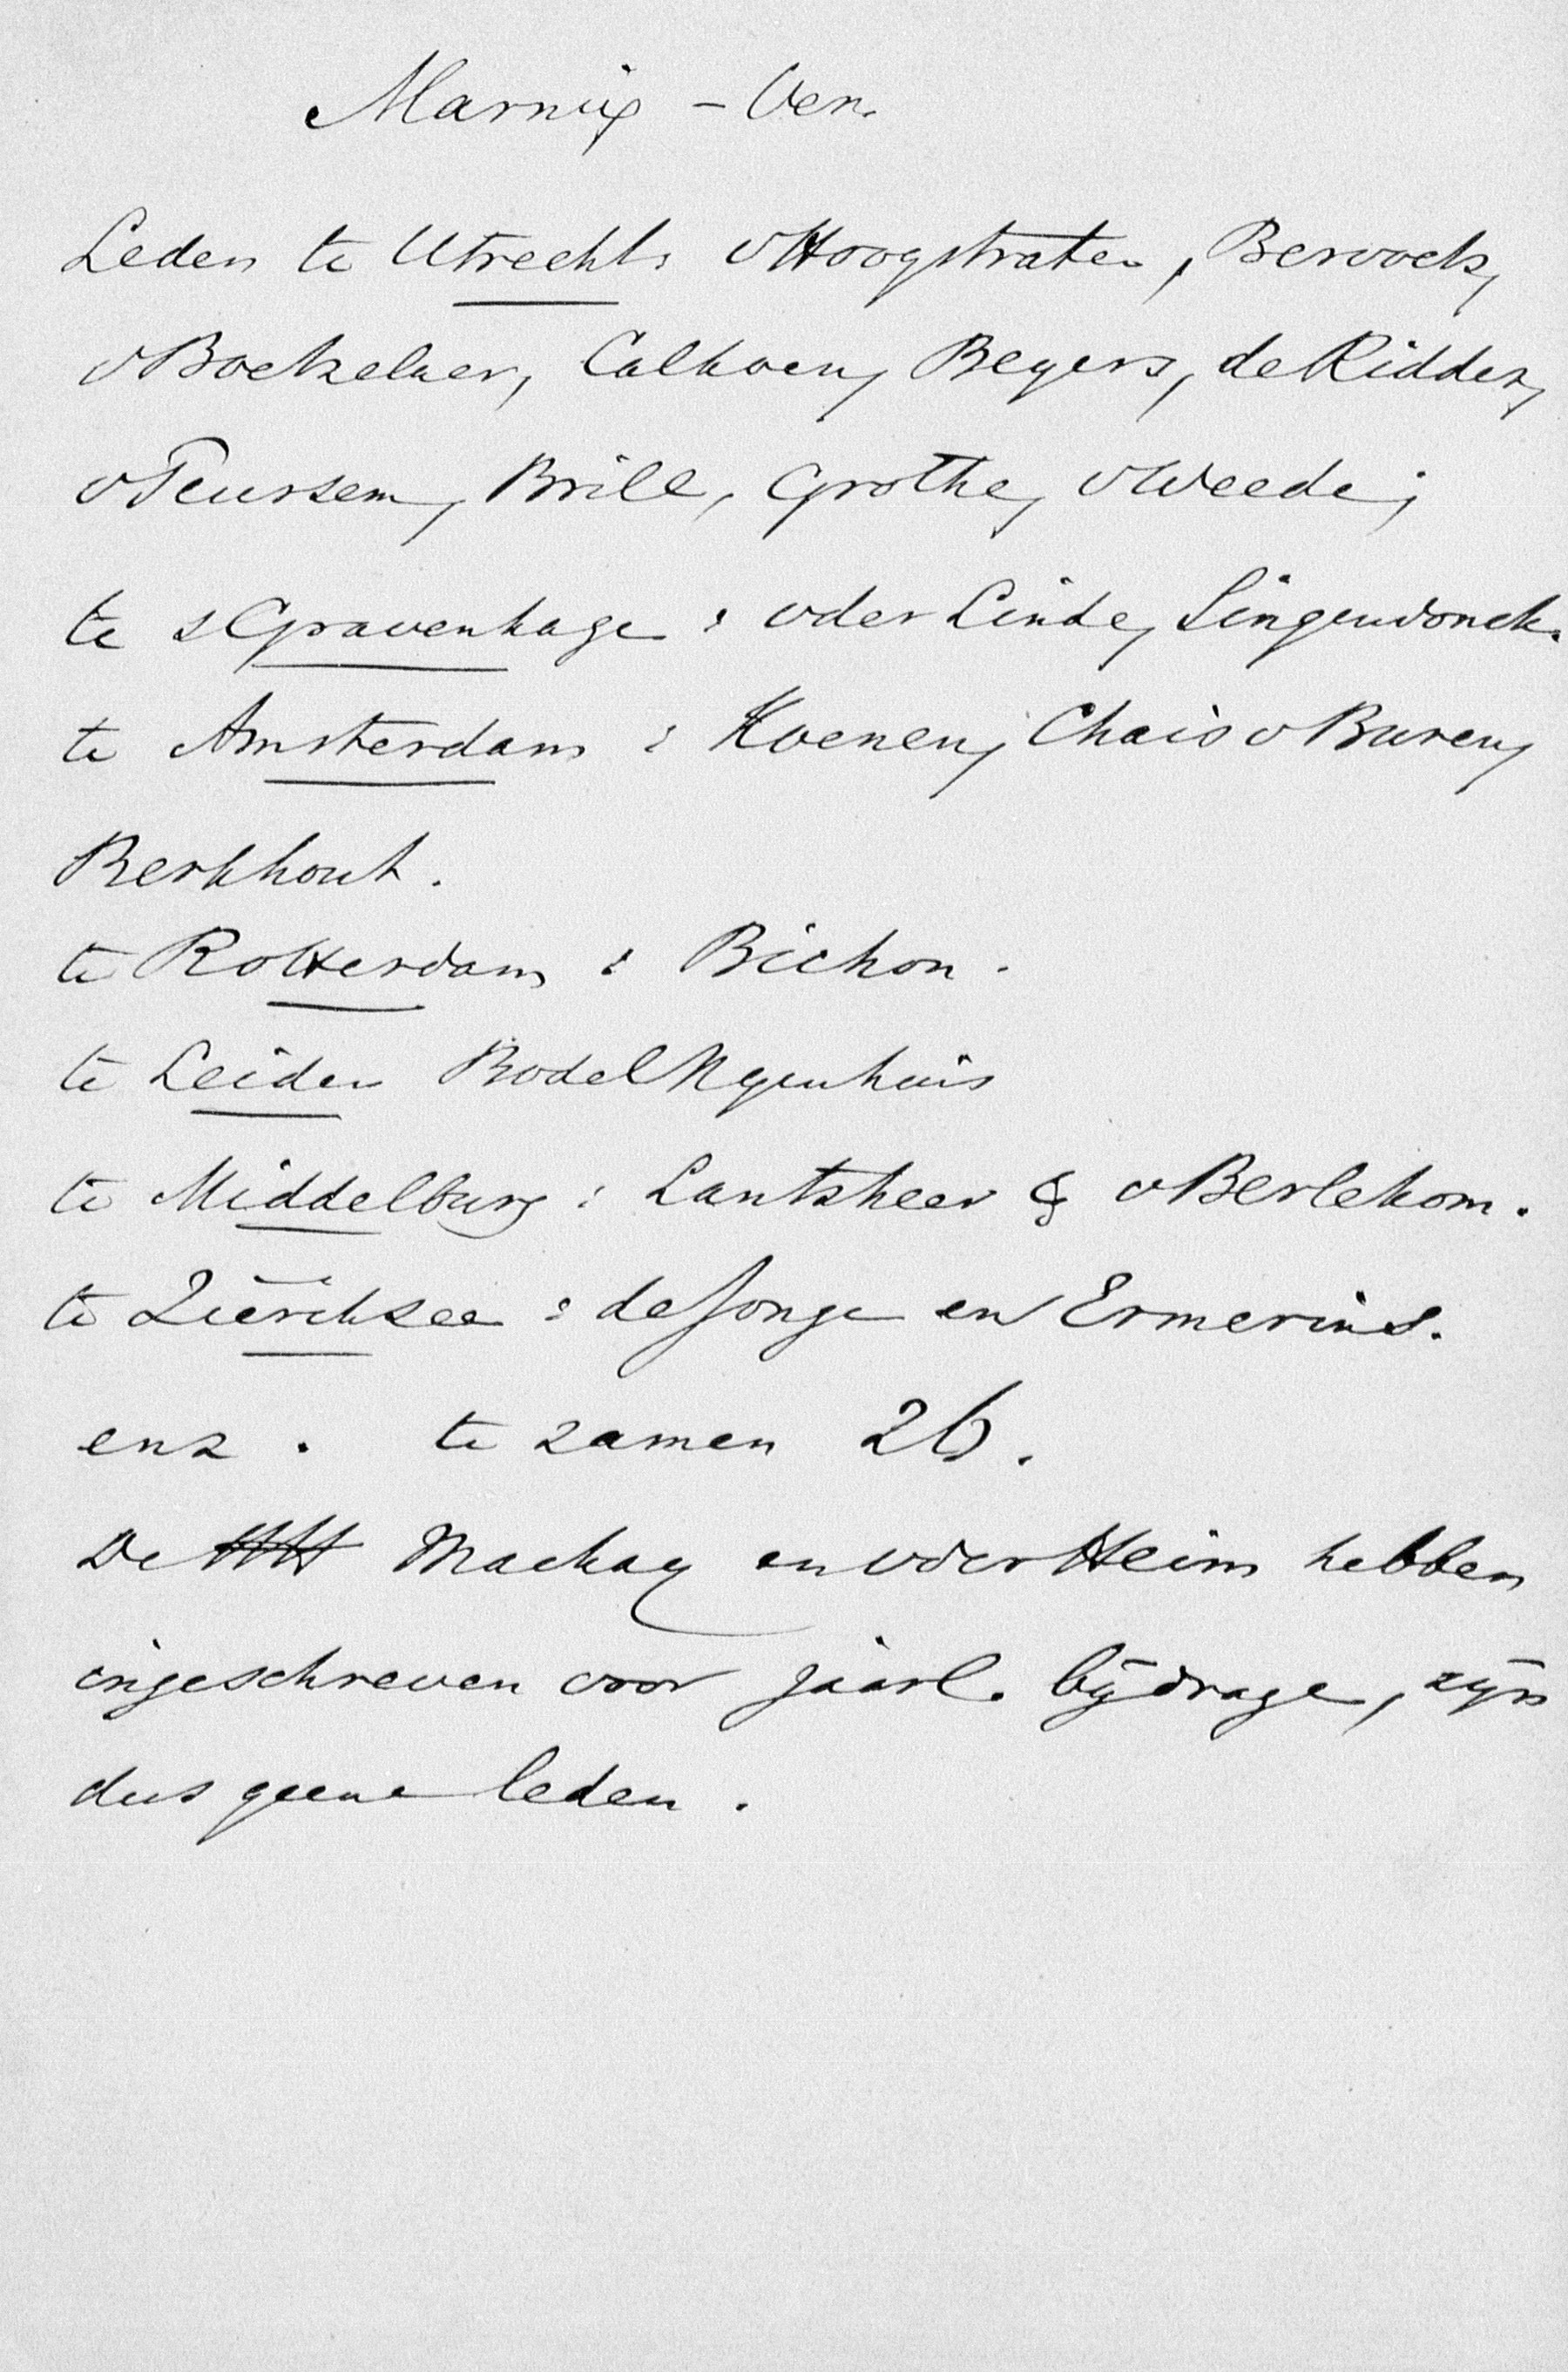 Marnix - Ver.
Leden te Utrecht: vHoogstraten, Bervoets,
vBoetzelaer, Calkoen, Beyers, de Ridder,
vBeursem, Brill, Grothe, vWeede;
te sGravenhage: vder Linde, Singendonck.
te Amsterdam: Koenen, Chais v Buren,
Berkhout.
te Rotterdam: Bichon.
te Leiden Bodel Nyenhuis
te Middelburg: Lantsheer & vBerlekom.
te Zierikzee: de Jonge en Ermerins.
enz. te zamen 26.
De HH Mackay en vder Heim hebben
ingeschreven voor jaarl. bijdrage, zijn
dus geene leden.